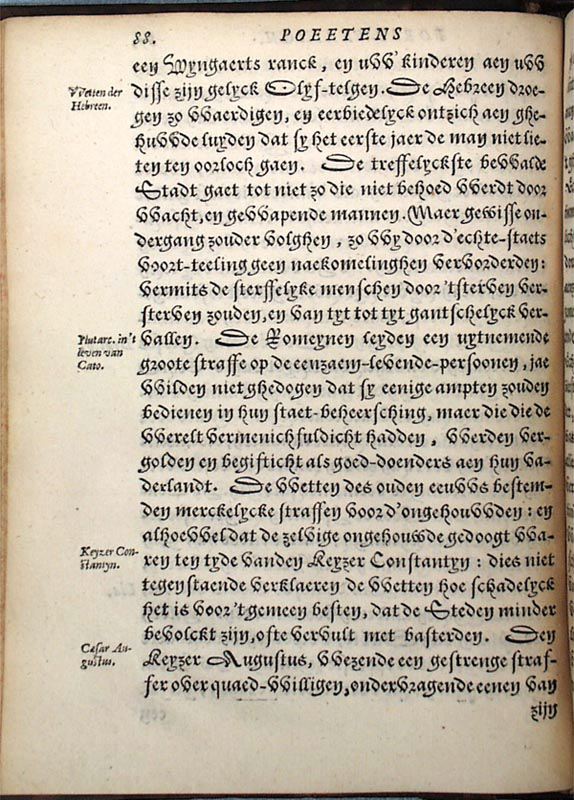 88. POEETENS
een Wyngaerts ranck, en uVV kinderen aen uVV
VVetten der Hebreen.
disse zijn gelyck Olyf-telgen. De Hebreen droe-
gen zo VVaerdigen, en eerbiedelyck ontzich aen ghe-
huVVde luyden dat sy het eerste jaer de man niet lie-
ten ten oorloch gaen. De treffelyckste beVValde
Stadt gaet tot niet zo die niet behoed VVerdt door
VVacht, en geVVapende mannen. Maer geWisse on-
dergang zouder volghen, zo VVy door d'echte-staets
voort-teeling geen naekomelinghen vervorderden:
vermits de sterffelyke menschen door 'tsterven ver-
sterven zouden, en van tyt tot tyt gantschelyck ver-
Plutarc. in't leven van Cato.
vallen. De Romeynen leyden een uytnemende
groote straffe op de eenzaem-levende-persoonen, jae
VVilden niet ghedogen dat sy eenige ampten zouden
bedienen in hun staet-beheersching, maer die die de
VVerelt vermenichfuldicht hadden, VVerden ver-
golden en begifticht als goed-doenders aen hun va-
derlandt. De VVetten des ouden eeuVVs bestem-
den merckelycke straffen voor d'ongehouVVden: en
alhoeVVel dat de zelvige ongehouWde gedoogt VVa-
Keyzer Constantyn.
ren ten tyde vanden Keyzer Constantyn: dies niet
tegenstaende verklaeren de VVetten hoe schadelyck
het is voor 'tgemeen besten, dat de Steden minder
bevolckt zijn, ofte vervult met basterden. Den
Cæsar Augustus.
Keyzer Augustus, VVezende een gestrenge straf-
fer over quaed-VVilligen, ondervragende eenen van
zijn